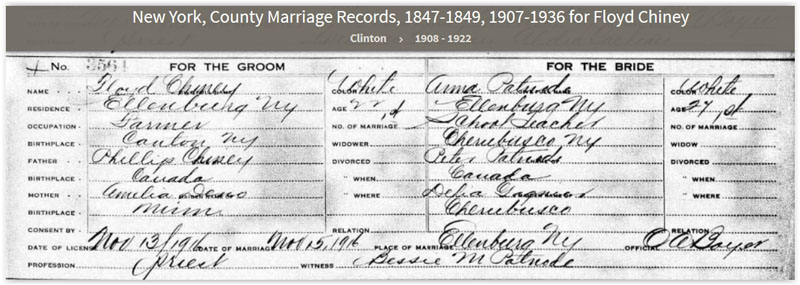 New York, County Marriage Records, 1847-1849, 1907-1936 for Floyd Chiney
Clinton › 1908 - 1922
No. 2564 FOR THE GROOM FOR THE BRIDE
NAME Floyd Chiney COLOR White Anna Patnode COLOR White
RESIDENCE Ellenburg Ny AGE 22 Ellenburg Ny AGE 27
OCCUPATION Farmer NO. OF MARRIAGE School Teacher NO. OF MARRIAGE
BIRTHPLACE Canton Ny WIDOWER Cherubusco Ny WIDOW
FATHER Phillip Chiney DIVORCED Peter Patnode DIVORCED
BIRTHPLACE Canada " WHEN Canada " WHEN
MOTHER Amelia " WHERE Delia " WHERE
BIRTHPLACE Minn Cherubusco
CONSENT BY RELATION RELATION
DATE OF LICENSE Nov 13/1916 DATE OF MARRIAGE Nov 15, 1916 PLACE OF MARRIAGE Ellenburg Ny OFFICIAL
PROFESSION Priest WITNESS Bessie M Patnode